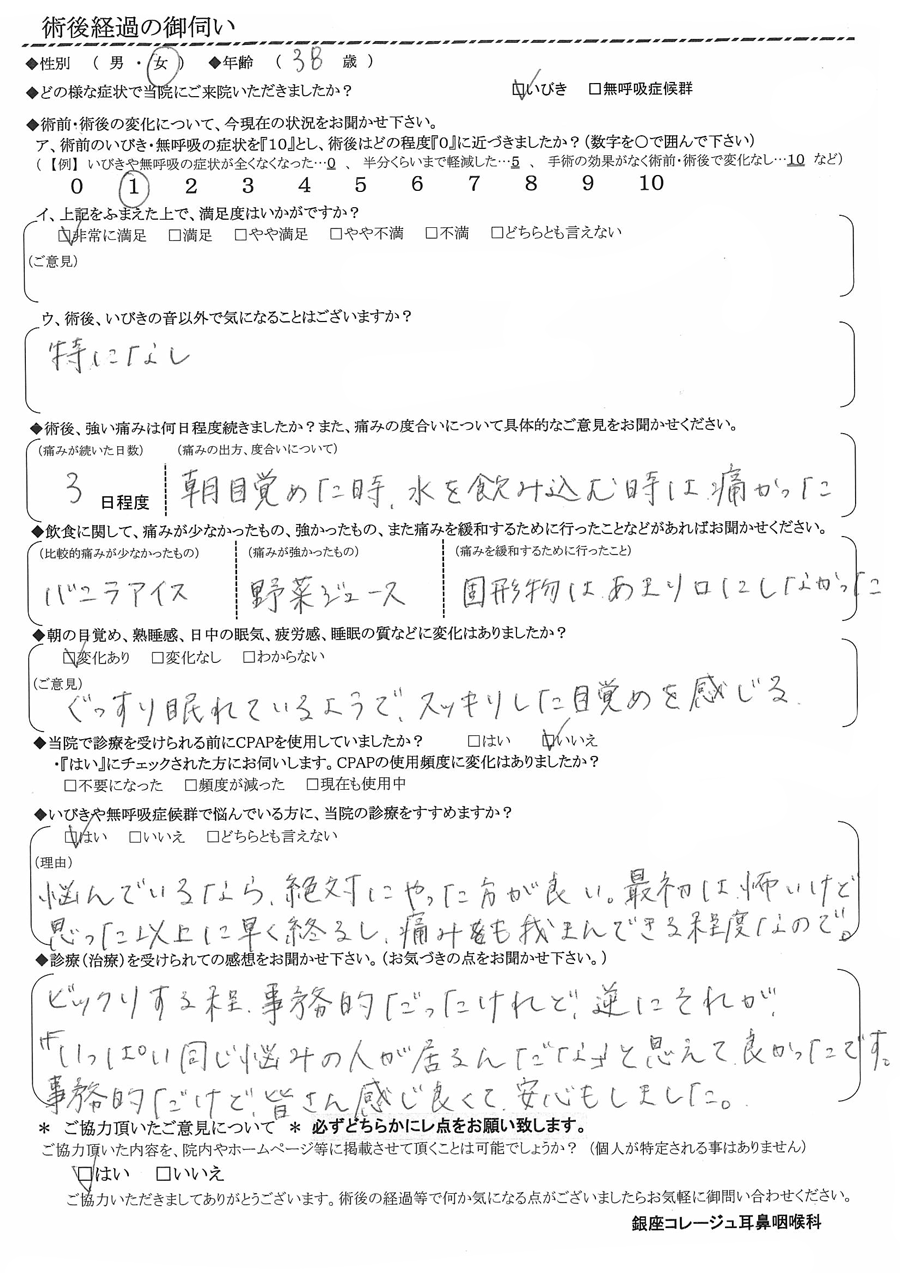 術後経過の御伺い
◆性別 （ 男 ・ 女 ） ◆年齢 （ 38 歳 ）
◆どの様な症状で当院にご来院いただきましたか？ ☑いびき □無呼吸症候群
◆術前・術後の変化について、今現在の状況をお聞かせ下さい。
ア、術前のいびき・無呼吸の症状を『10』とし、術後はどの程度『0』に近づきましたか？（数字を○で囲んで下さい）
（【例】いびきや無呼吸の症状が全くなくなった…0 、 半分くらいまで軽減した…5 、 手術の効果がなく術前・術後で変化なし…10 など）
0 1 2 3 4 5 6 7 8 9 10
イ、上記をふまえた上で、満足度はいかがですか？
☑非常に満足 □満足 □やや満足 □やや不満 □不満 □どちらとも言えない
（ご意見）
ウ、術後、いびきの音以外で気になることはございますか？
特になし
◆術後、強い痛みは何日程度続きましたか？また、痛みの度合いについて具体的なご意見をお聞かせください。
（痛みが続いた日数） （痛みの出方、度合いについて）
3 日程度 朝目覚めた時、水を飲み込む時は痛かった
◆飲食に関して、痛みが少なかったもの、強かったもの、また痛みを緩和するために行ったことなどがあればお聞かせください。
（比較的痛みが少なかったもの） （痛みが強かったもの） （痛みを緩和するために行ったこと）
バニラアイス 野菜ジュース 固形物はあまり口にしなかった
◆朝の目覚め、熟睡感、日中の眠気、疲労感、睡眠の質などに変化はありましたか？
☑変化あり □変化なし □わからない
（ご意見）
ぐっすり眠れているようで、スッキリした目覚めを感じる。
◆当院で診療を受けられる前にCPAPを使用していましたか？ □はい ☑いいえ
・『はい』にチェックされた方にお伺いします。CPAPの使用頻度に変化はありましたか？
□不要になった □頻度が減った □現在も使用中
◆いびきや無呼吸症候群で悩んでいる方に、当院の診療をすすめますか？
☑はい □いいえ □どちらとも言えない
（理由）
悩んでいるなら、絶対にやった方が良い。最初は怖いけど
思った以上に早く終るし、痛みも我まんできる程度なので。
◆診療（治療）を受けられての感想をお聞かせ下さい。（お気づきの点をお聞かせ下さい。）
ビックリする程、事務的だったけれど、逆にそれが、
『いっぱい同じ悩みの人が居るんだな』と思えて良かったです。
事務的だけど、皆さん感じ良くて、安心もしました。
＊ ご協力頂いたご意見について ＊ 必ずどちらかにレ点をお願い致します。
ご協力頂いた内容を、院内やホームページ等に掲載させて頂くことは可能でしょうか？ （個人が特定される事はありません）
☑はい □いいえ
ご協力いただきましてありがとうございます。術後の経過等で何か気になる点がございましたらお気軽に御問い合わせください。
銀座コレージュ耳鼻咽喉科